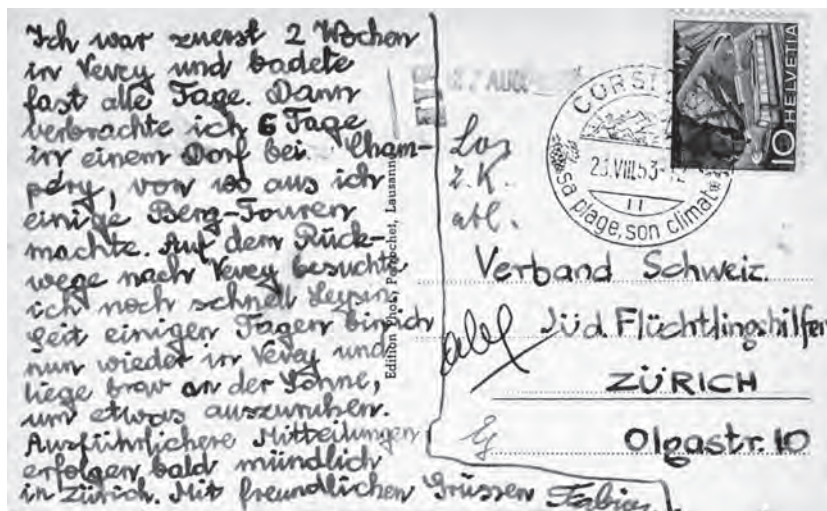 Ich war zuerst 2 Wochen
in Vevey und badete
fast alle Tage. Dann
verbrachte ich 6 Tage
in einem Dorf bei Cham-
péry, von wo aus ich
einige Berg-Touren
machte. Auf dem Rück-
wege nach Vevey besuchte
ich noch schnell Leysin.
Seit einigen Tagen bin ich
nun wieder in Vevey und
liege brav an der Sonne,
um etwas auszuruhen.
Ausführlichere Mitteilungen
erfolgen bald mündlich
in Zürich. Mit freundlichen Grüssen Fabian
Edition Phot. Perrochet, Lausanne
7 AUG
CORSI
23.VIII.53-12
11
sa plage, son climat
10 HELVETIA
z. K.
Verband Schweiz.
Jüd. Flüchtlingshilfen
ZÜRICH
Olgastr. 10